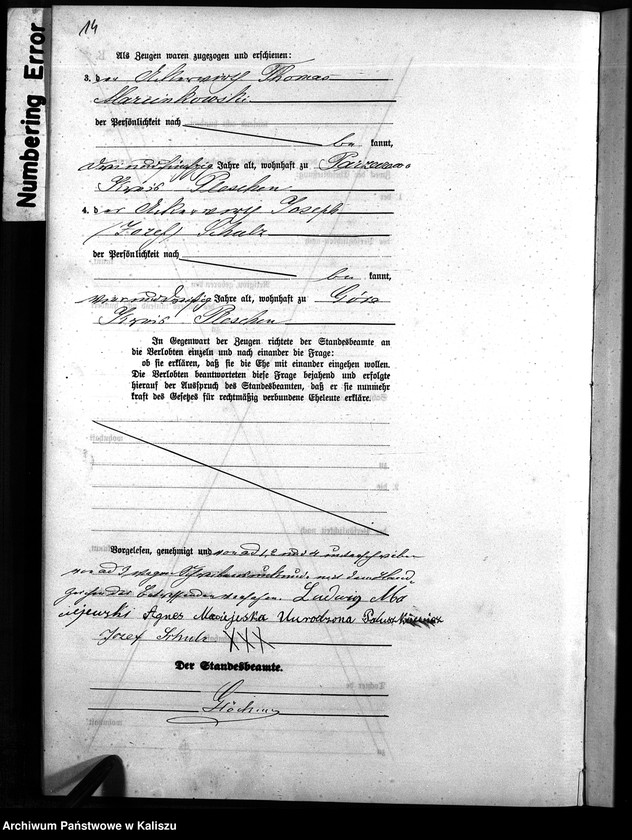 14
Numbering Error
Als Zeugen waren zugezogen und erschienen:
3. der Ackerwirth Thomas
Marcinkowski
der Persönlichkeit nach
be kannt,
dreiundfünfzig Jahre alt, wohnhaft zu
Kreis Pleschen
4. der Ackerwirth Joseph
(Jozef) Schulz
der Persönlichkeit nach
be kannt,
vierunddreißig Jahre alt, wohnhaft zu Góra
Kreis Pleschen
In Gegenwart der Zeugen richtete der Standesbeamte an
die Verlobten einzeln und nach einander die Frage:
ob sie erklären, daß sie die Ehe mit einander eingehen wollen.
Die Verlobten beantworteten diese Frage bejahend und erfolgte
hierauf der Ausspruch des Standesbeamten, daß er sie nunmehr
kraft des Gesetzes für rechtmäßig verbundene Eheleute erkläre.
Vorgelesen, genehmigt und von ad 1, 2 und 4 unterschrieben
von ad 3 wegen Schreibensunkunde mit dem Hand-
zeichen des Betreffenden versehen. Ludwig Ma
ciejewski Agnes Maciejeska Unrodzona
Jozef Schulz XXX
Der Standesbeamte.
Archiwum Państwowe w Kaliszu